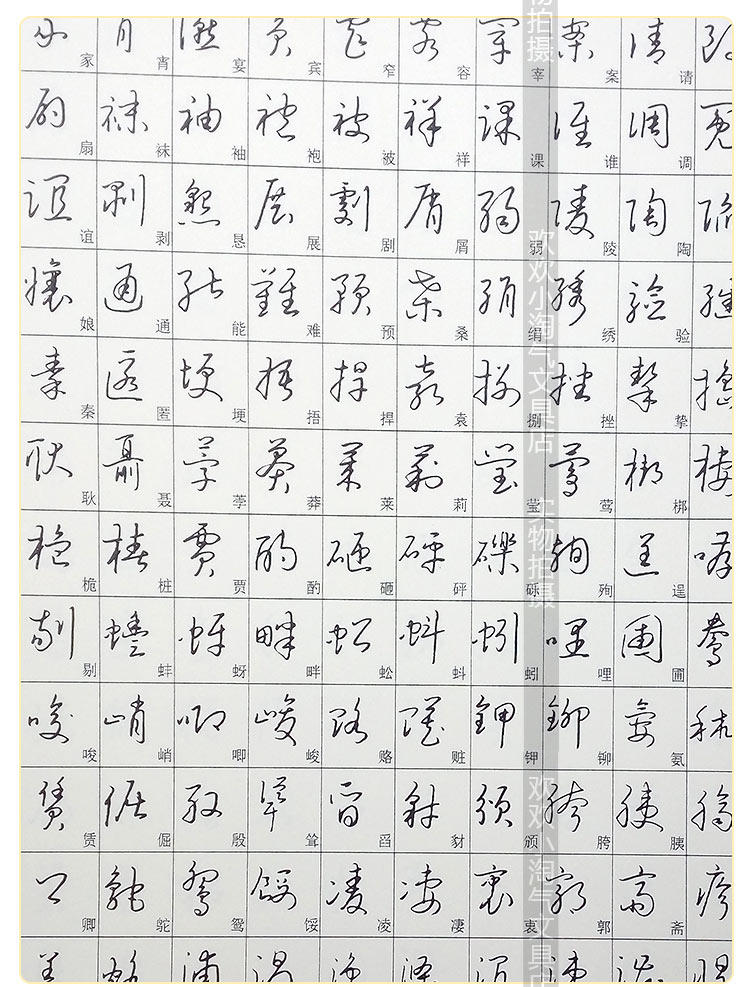 家 宵 宴 宾 窄 容 宰 案 请
扇 袜 袖 袍 被 祥 课 谁 调
谊 剥 恳 展 剧 屑 弱 陵 陶
娘 通 能 难 预 桑 绢 绣 验
秦 匿 埂 捂 捍 袁 捌 挫 挚
耿 聂 荸 莽 莱 莉 莹 莺 梆
桅 桩 贾 酌 砸 砰 砾 殉 逞
剔 蚌 蚜 畔 蚣 蚪 蚓 哩 圃
唆 峭 唧 峻 赂 赃 钾 铆 氨
赁 倔 殷 耸 舀 豺 颁 胯 胰
卿 鸵 鸳 馁 凌 凄 衷 郭 斋
物拍摄
欢欢小淘气文具店
实物拍摄
欢欢小淘气文具店